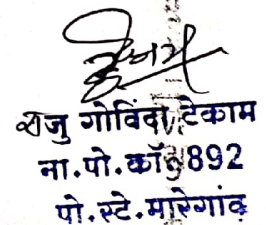 राजु गोविंदा टेकाम
ना.पो.कॉ 892
पो.स्टे.मारेगांव